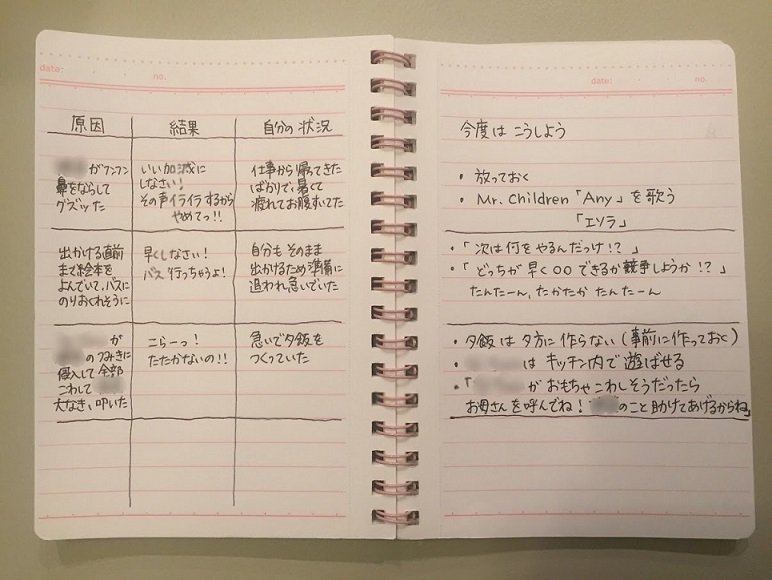 date:
no.
原因
結果
自分の状況
がフンフン
鼻をならして
グズッた
いい加減に
しなさい!
その声イライラするから
やめてっ!!
仕事から帰ってきた
ばかりで、暑くて
疲れてお腹すいてた
出かける直前
まで絵本を
よんでいて、バスに
のりおくれそうに
早くしなさい!
バス行っちゃうよ!
自分もそのまま
出かけるため準備に
追われ急いでいた
が
のつみきに
侵入して全部
こわして
大なき、叩いた
こらーっ!
たたかないの!!
急いで夕飯を
つくっていた
date:
no.
今度は こうしよう
・放っておく
・Mr.Children「Any」を歌う
「エソラ」
・「次は何をやるんだっけ!?」
・「どっちが早く〇〇できるか競争しようか!?」
たんたーん、たかたか たんたーん
・夕飯は夕方に作らない(事前に作っておく)
・ は キッチン内で遊ばせる
・「 が おもちゃこわしそうだったら
お母さんを呼んでね! のこと助けてあげるからね」